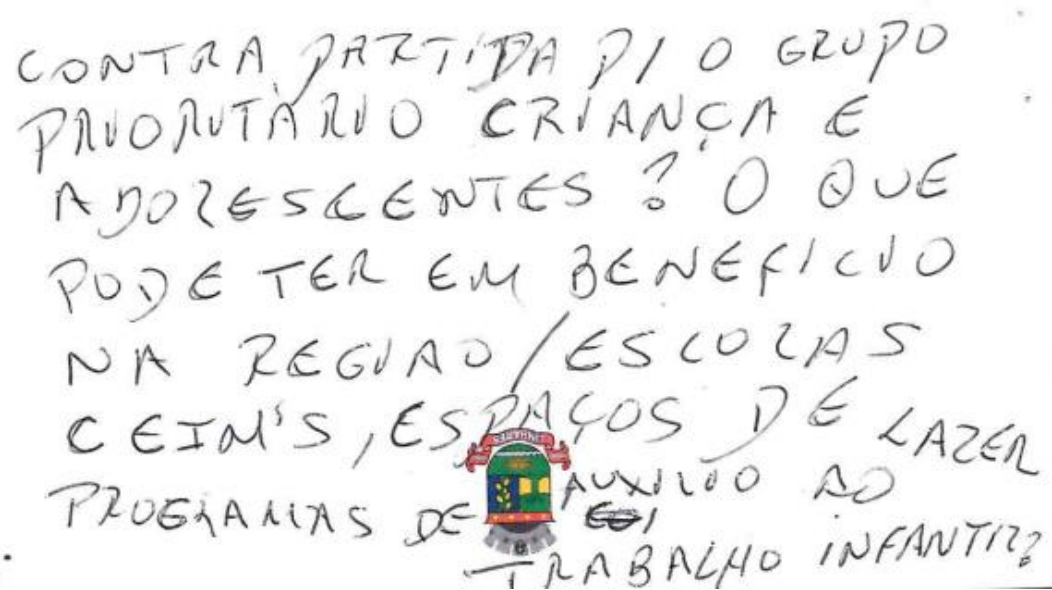 CONTRA PARTIDA P/ O GRUPO
PRIORITÁRIO CRIANÇA E
ADOLESCENTES? O QUE
PODE TER EM BENEFICIO
NA REGIÃO/ESCOLAS
CEIM'S, ESPAÇOS DE LAZER
PROGRAMAS DE AUXILIO AO
TRABALHO INFANTIL?
LINHARES